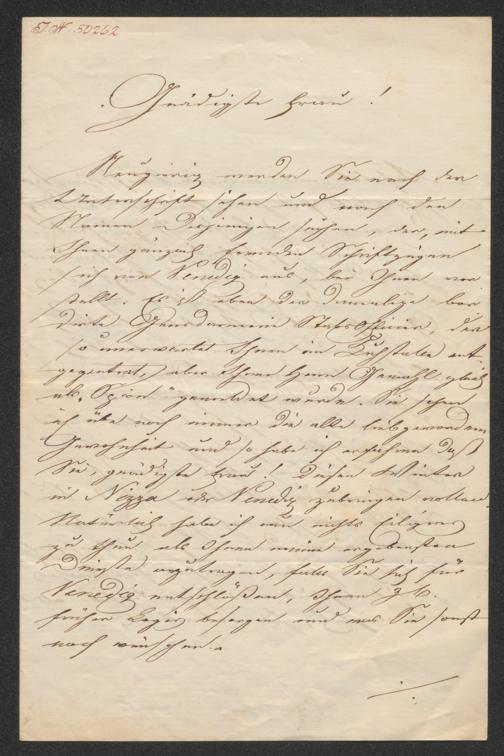 I. N. 50262
Gnädigste Frau!
Neugierig werden Sie nach der
Unterschrift sehen und nach dem
Namen Desjenigen suchen, der, mit
Ihnen gänzlich fremden Schriftzügen
sich von Venedig aus, bei Ihnen vor
stellt. Es ist eben der damalige
Gensdarmerie Stabsoffizier, der
so unerwartet Ihnen im Kuhstalle ent
gegentrat, aber Ihrem Herrn Gemahl gleich
als "Spion" gemeldet wurde. Sie sehen
ich übe noch immer die alte liebgewordene
Gewohnheit und so habe ich erfahren daß
Sie, gnädigste Frau! diesen Winter
in Nizza oder Venedig zubringen wollen.
Natürlich habe ich nun nichts Eiligeres
zu thun als Ihnen meine ergebensten
Dienste anzutragen, falls Sie sich für
Venedig entschlüßen, Ihnen z. B.
früher Logis besorgen und was Sie sonst
noch wünschen.